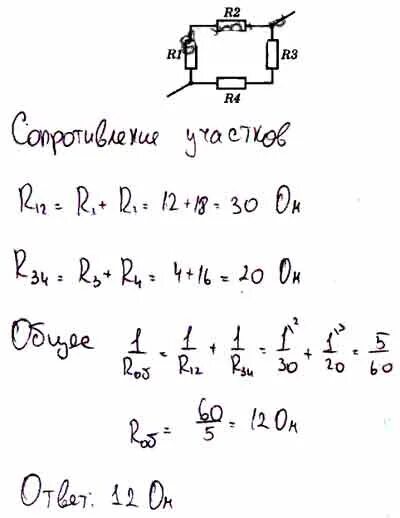 R2
R1
R3
R4
Сопротивление участков
R₁₂ = R₁ + R₁ = 12 + 18 = 30 Ом
R₃₄ = R₃ + R₄ = 4 + 16 = 20 Ом
Общее 1/Rоб = 1/R₁₂ + 1/R₃₄ = 1\²/30 + 1\³/20 = 5/60
Rоб = 60/5 = 12 Ом
Ответ: 12 Ом